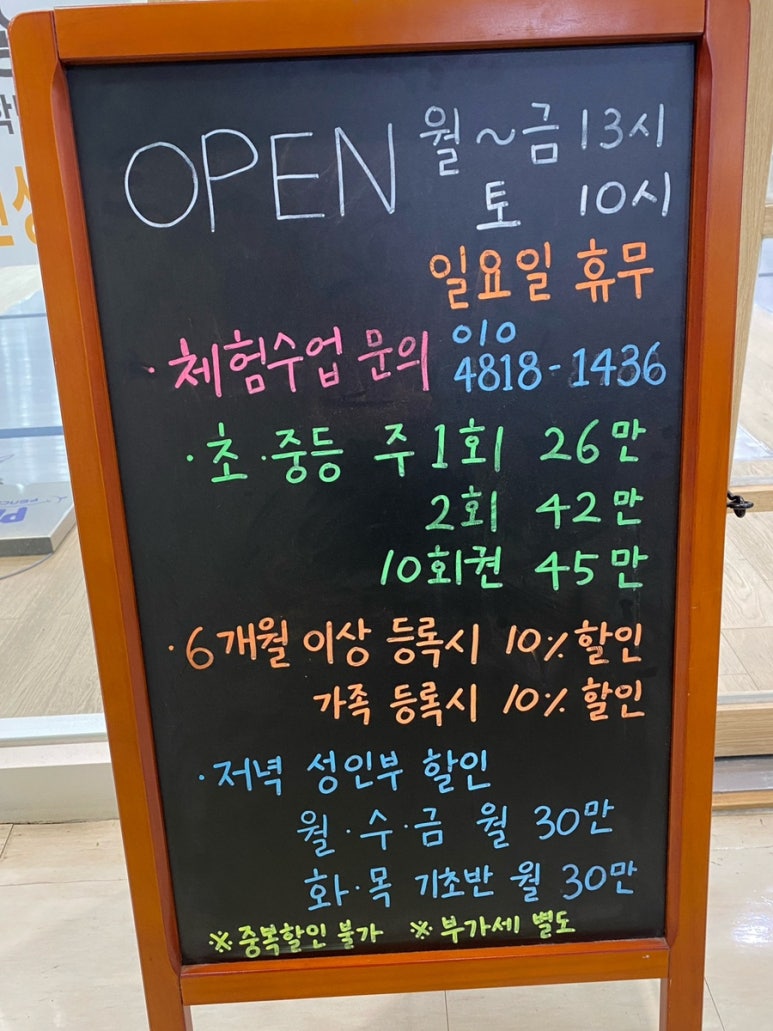 OPEN 월~금 13시
토 10시
일요일 휴무
·체험수업 문의 010
4818-1436
·초·중등 주1회 26만
2회 42만
10회권 45만
·6개월 이상 등록시 10% 할인
가족 등록시 10% 할인
·저녁 성인부 할인
월·수·금 월 30만
화·목 기초반 월 30만
※중복할인 불가 ※부가세 별도